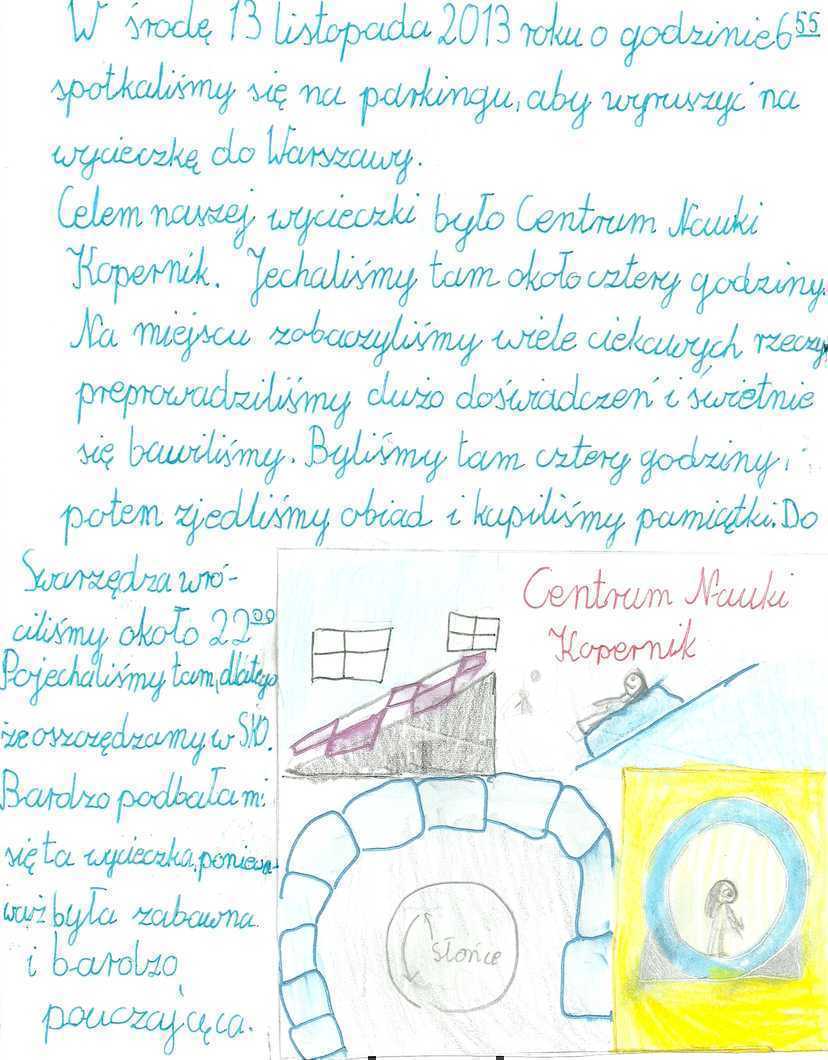 W środę 13 listopada 2013 roku o godzinie 6⁵⁵
spotkaliśmy się na parkingu, aby wyruszyć na
wycieczkę do Warszawy.
Celem naszej wycieczki było Centrum Nauki
Kopernik. Jechaliśmy tam około cztery godziny.
Na miejscu zobaczyliśmy wiele ciekawych rzeczy,
preprowadziliśmy dużo doświadczeń i świetnie
się bawiliśmy. Byliśmy tam cztery godziny,
potem zjedliśmy obiad i kupiliśmy pamiątki. Do
Swarzędza wró-
ciliśmy około 22⁰⁰
Pojechaliśmy tam, dlatego
że oszczędzamy w SKO.
Bardzo podbała mi
się ta wycieczka, poniewa-
waż była zabawna
i bardzo
pouczająca.
Centrum Nauki
Kopernik
Słońce